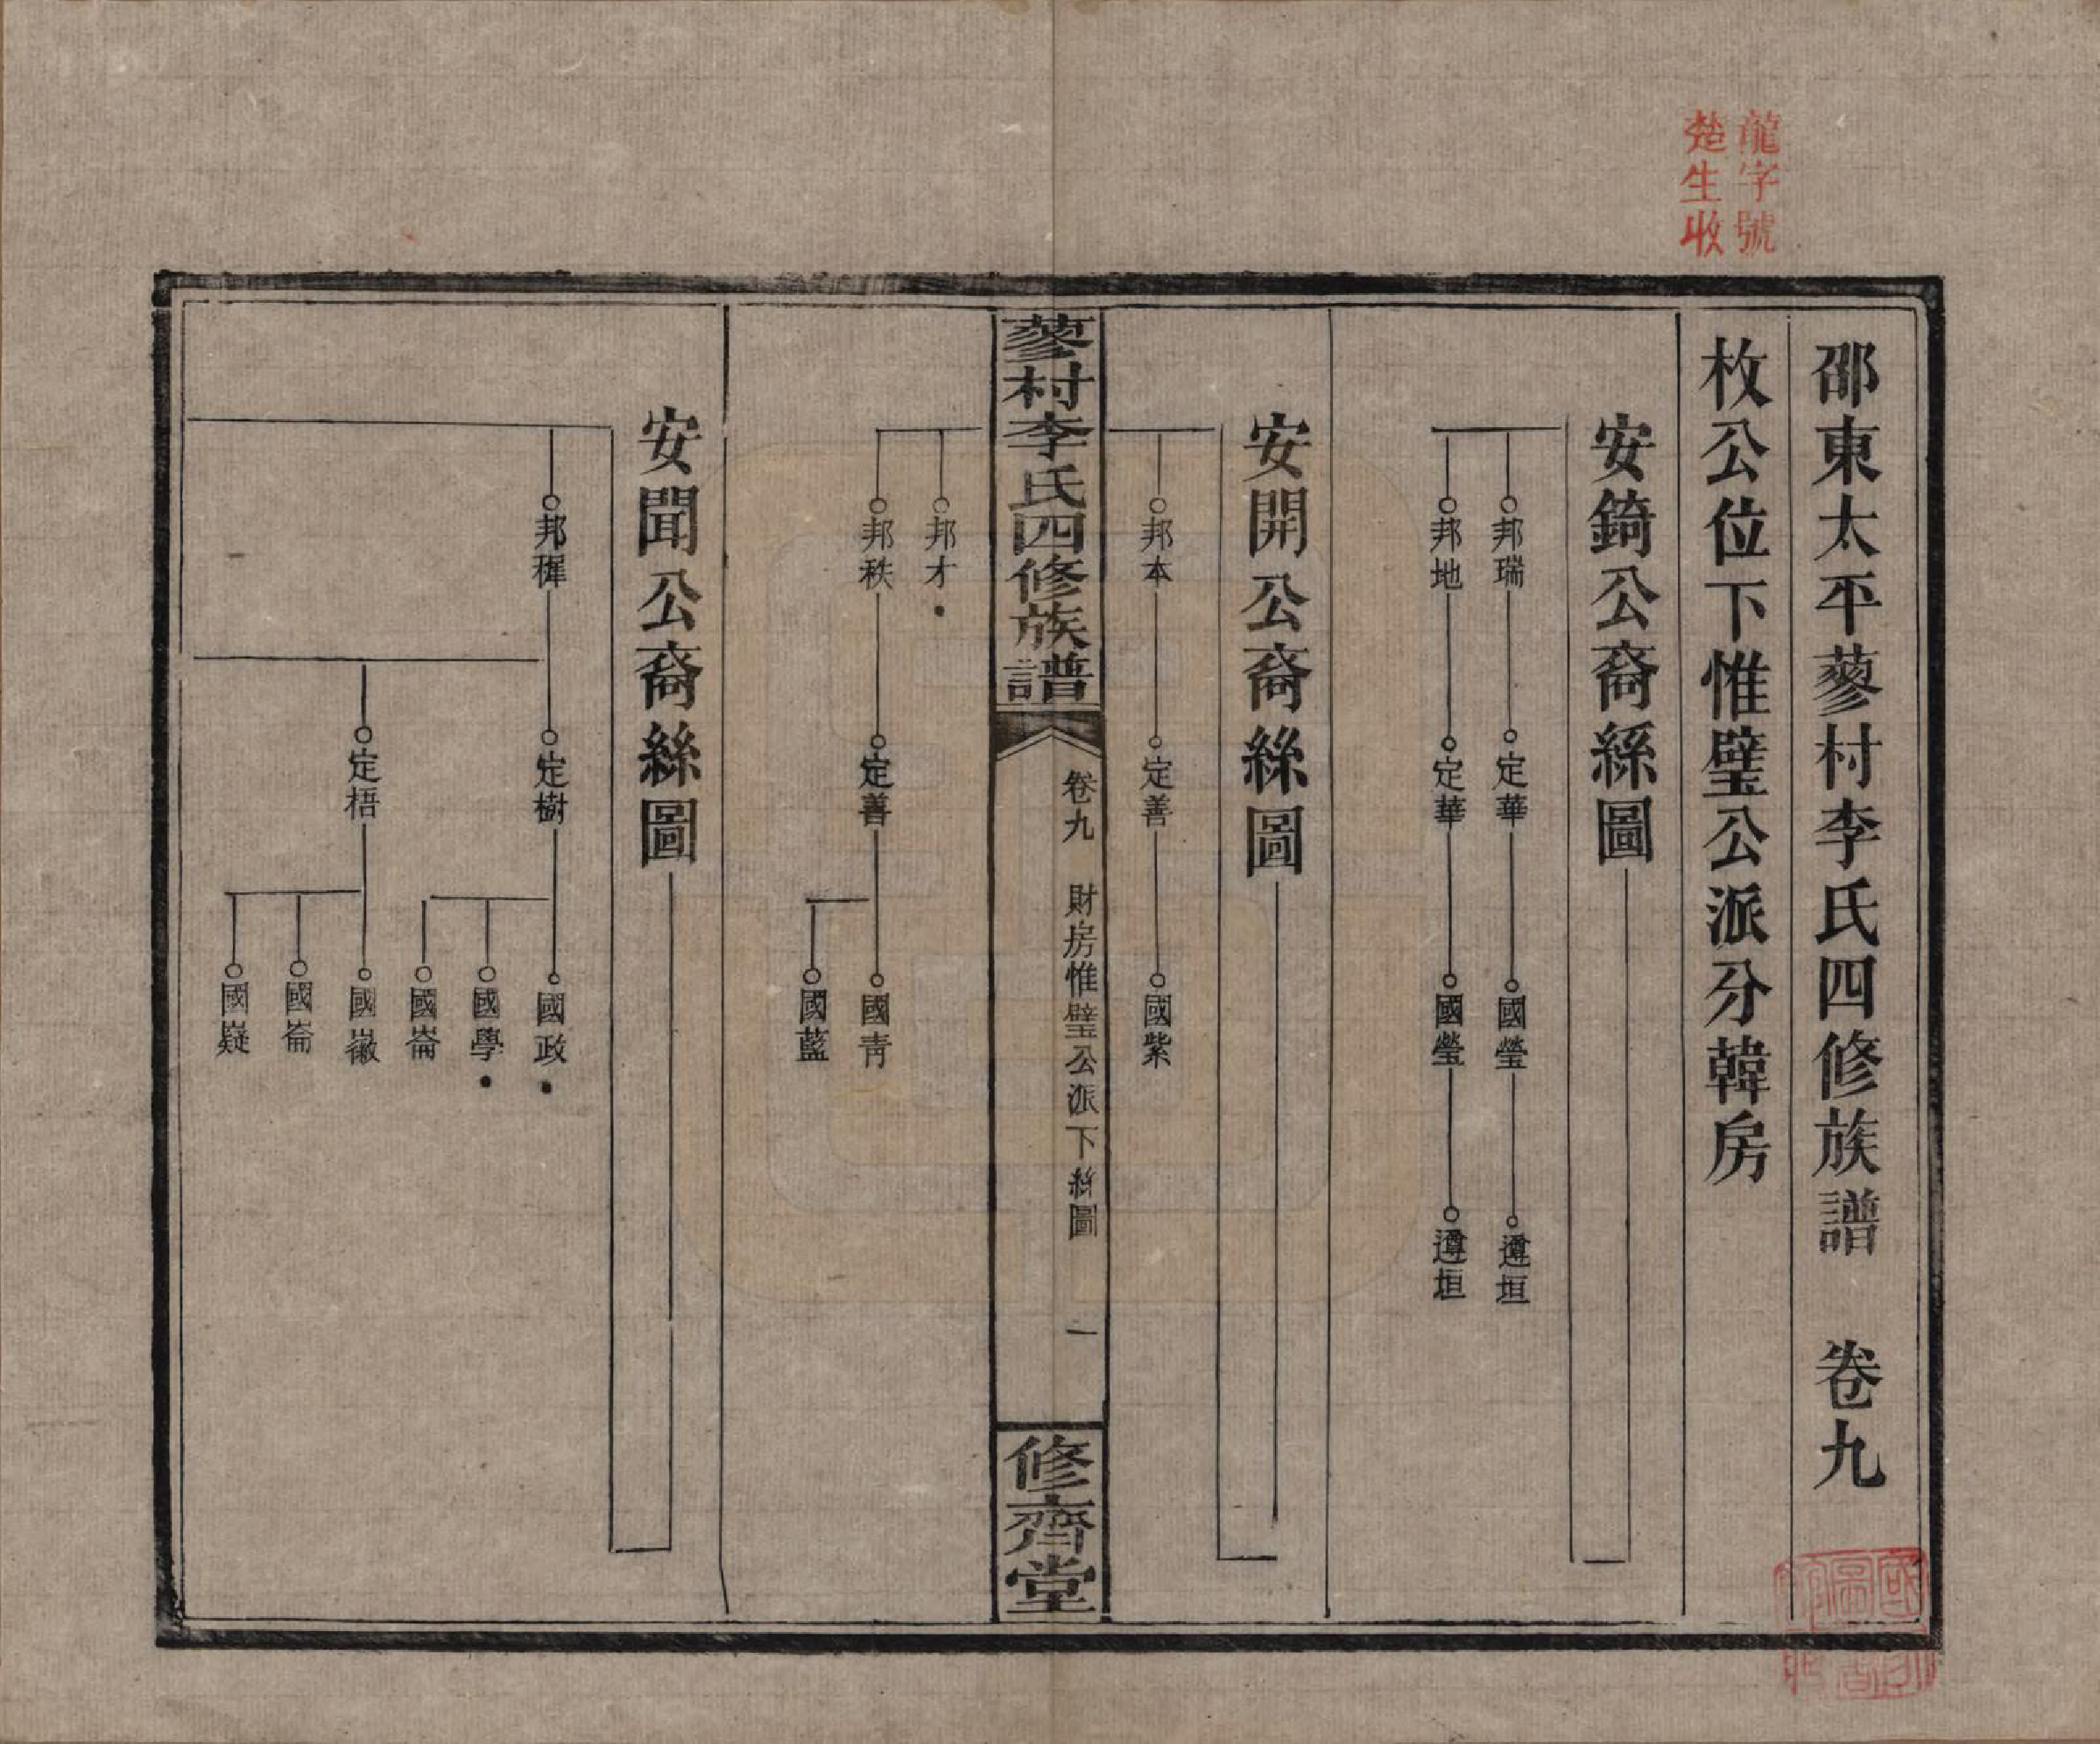 龍字號
楚生收
邵東太平蓼村李氏四修族譜 卷九
枚公位下惟璧公派分韓房
安錡公裔絲圖
邦瑞 定華 國瑩 遵垣
邦地 定華 國瑩 遵垣
安開公裔絲圖
邦本 定善 國紫
蓼村李氏四修族譜
卷九 財房惟璧公派下絲圖 一
修齊堂
邦才
邦秩 定善 國青
國藍
安聞公裔絲圖
邦穉 定樹 國政
國學
國崙
定梧 國徽
國崙
國嶷